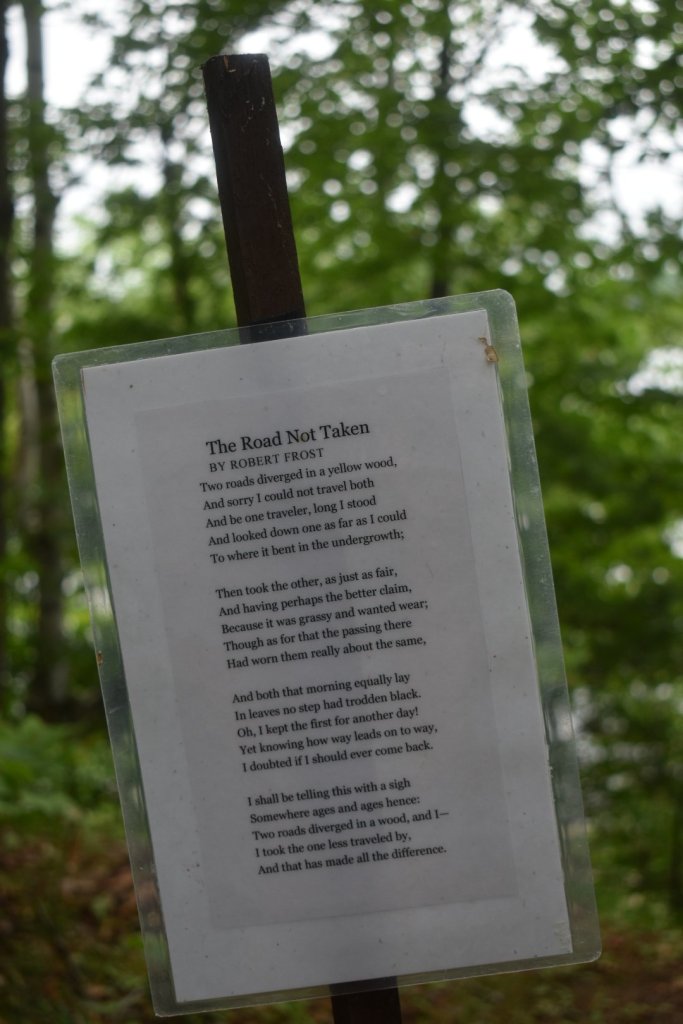 The Road Not Taken
BY ROBERT FROST
Two roads diverged in a yellow wood,
And sorry I could not travel both
And be one traveler, long I stood
And looked down one as far as I could
To where it bent in the undergrowth;
Then took the other, as just as fair,
And having perhaps the better claim,
Because it was grassy and wanted wear;
Though as for that the passing there
Had worn them really about the same,
And both that morning equally lay
In leaves no step had trodden black.
Oh, I kept the first for another day!
Yet knowing how way leads on to way,
I doubted if I should ever come back.
I shall be telling this with a sigh
Somewhere ages and ages hence:
Two roads diverged in a wood, and I—
I took the one less traveled by,
And that has made all the difference.